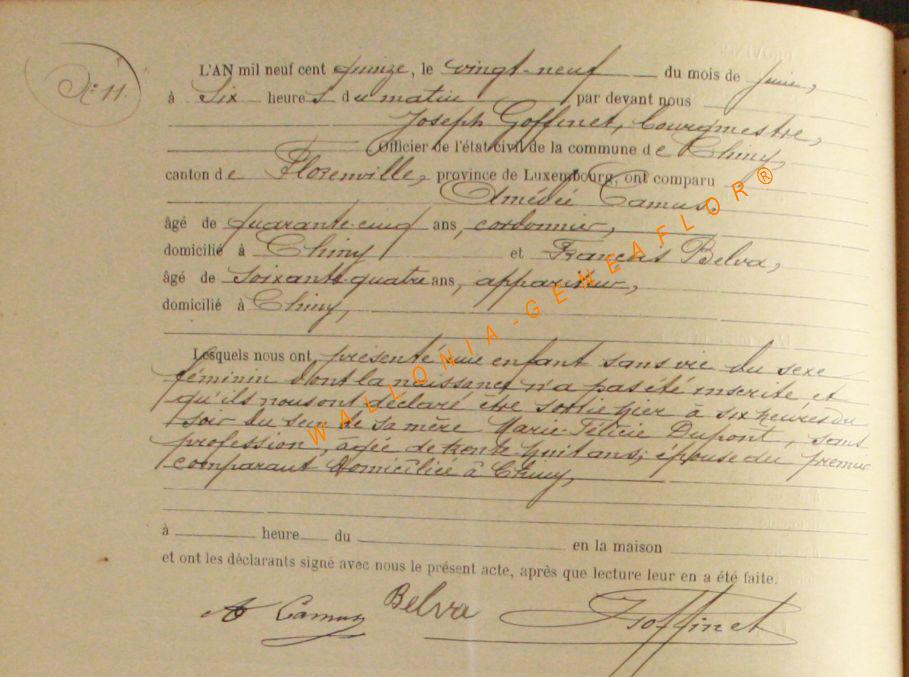 N° 11.
L'AN mil neuf cent quinze, le vingt-neuf du mois de juin,
à Six heures du matin par devant nous
Joseph Goffinet, Bourgmestre,
Officier de l'état civil de la commune de Chiny,
canton de Florenville, province de Luxembourg, ont comparu
Amédée Camus.
âgé de quarante-cinq ans, cordonnier,
domicilié à Chiny et François Belva,
âgé de soixante-quatre ans, appariteur,
domicilié à Chiny,
Lesquels nous ont présenté un enfant sans vie du sexe
féminin dont la naissance n'a pas été inscrite et
qu'ils nous ont déclaré être sortie hier à six heures du
soir du sein de sa mère Marie-Félicie Dupont, sans
profession, âgée de trente-huit ans, épouse du premier
comparant domiciliée à Chiny,
à heure du en la maison
et ont les déclarants signé avec nous le présent acte, après que lecture leur en a été faite.
A Camus Belva Goffinet
WALLONIA-GENEAFLOR®